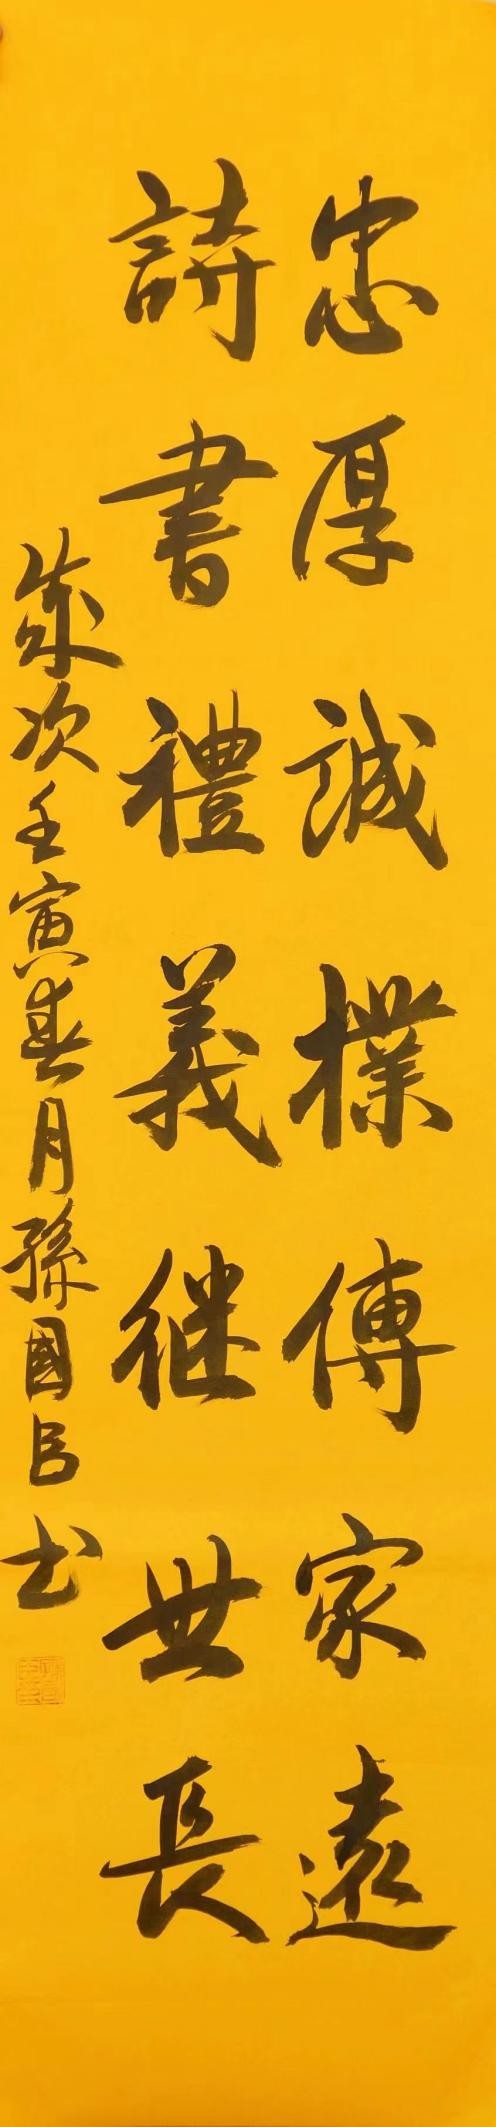 忠厚誠樸傳家遠
詩書禮義继世長
歲次壬寅春月孫國臣书